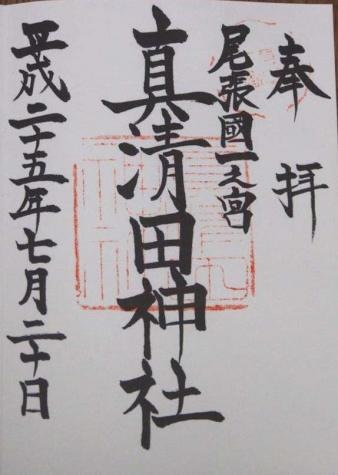 奉拝
尾張國一之宮
真清田神社
平成二十五年七月二十日